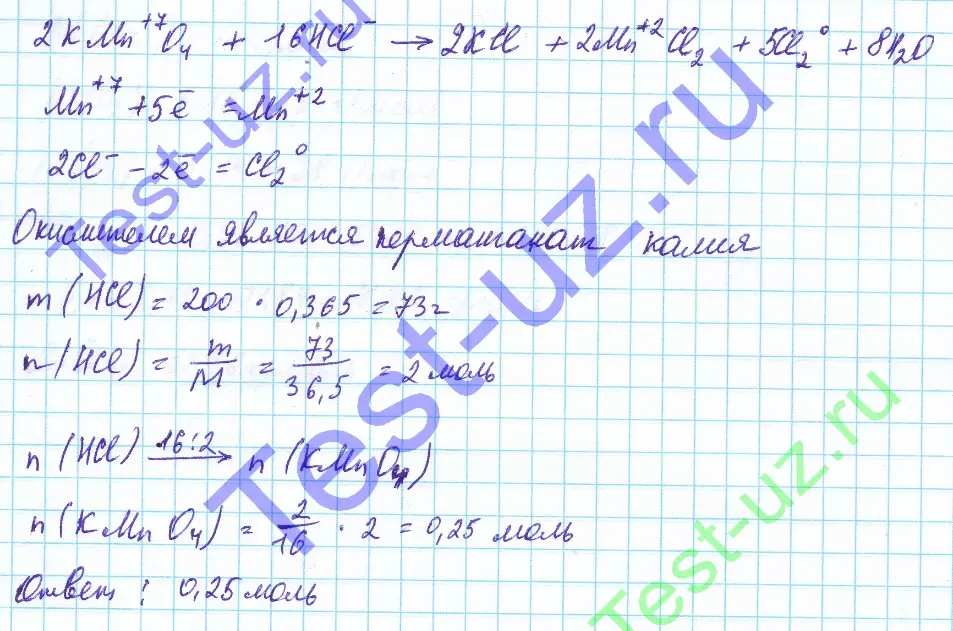 2KMn⁺⁷O₄ + 16HCl⁻ → 2KCl + 2Mn⁺²Cl₂ + 5Cl₂⁰ + 8H₂O
Mn⁺⁷ + 5ē = Mn⁺²
2Cl⁻ - 2ē = Cl₂⁰
Окислителем является перманганат калия
m (HCl) = 200 · 0,365 = 73г
n (HCl) = m/M = 73/36,5 = 2 моль
n (HCl) 16:2 → n (KMnO₄)
n (KMnO₄) = 2/16 · 2 = 0,25 моль
Ответ: 0,25 моль
Test-uz.ru
Test-uz.ru
Test-uz.ru